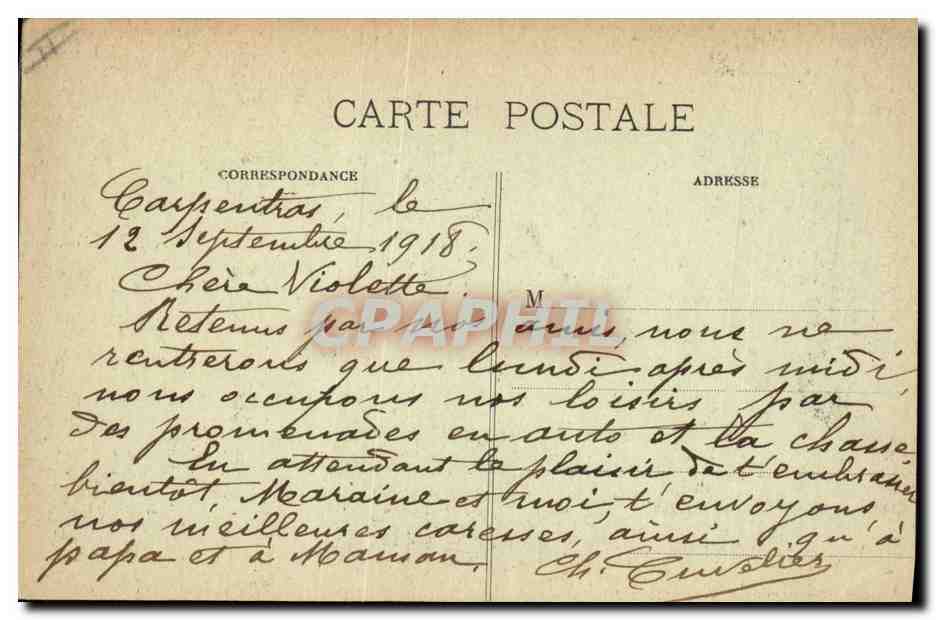 CARTE POSTALE
CORRESPONDANCE
ADRESSE
Carpentras, le
12 Septembre 1918.
Chère Violette.
M
CPARHIL
Retenus par nos amis, nous ne
rentrerons que lundi après midi,
nous occupons nos loisirs par
des promenades en auto et la chasse
En attendant le plaisir de t'embrasser
bientôt Maraine et moi, t'envoyons,
nos meilleures caresses, ainsi qu'à
papa et à Maman.
Ch. Cuvelier